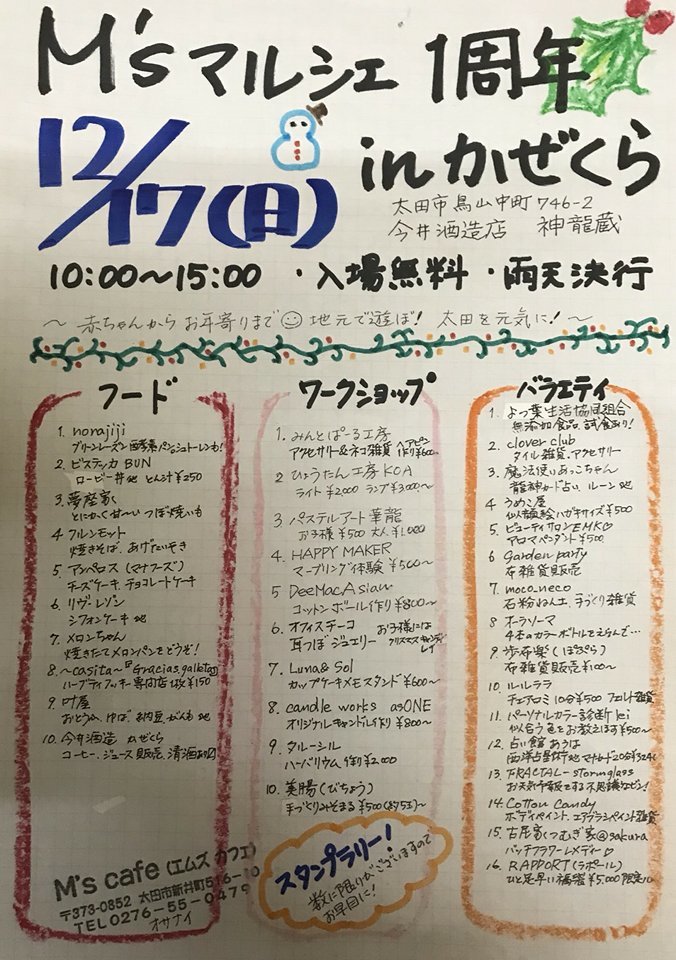 M'sマルシェ 1周年
12/17(日)
inかぜくら
太田市鳥山中町746-2
今井酒造店 神龍蔵
10:00〜15:00 ・入場無料 ・雨天決行
〜赤ちゃんからお年寄りまで 地元で遊ぼ! 太田を元気に!〜
フード
1. norajiji
グリーンレーズン酵素パン,シュトーレンも!
2. ビステッカBUN
ロービー丼他 とん汁¥250
3. 夢産家
とにかく甘〜い つぼ焼いも
4 フルンモット
焼きそば、あげたいやき
5. アンペロス(マナフーズ)
チーズケーキ、チョコレートケーキ
6. リヴ・レゾン
シフォンケーキ 他
7. メロンちゃん
焼きたてメロンパンをどうぞ!
8. 〜casita〜『Gracias,galletas』
ハーブティクッキー専門店 1枚¥150
9. 叶屋
おとうふ、ゆば、納豆、がんも 他
10. 今井酒造 かぜくら
コーヒー、ジュース販売、清酒あり
M's cafe (エムズ カフェ)
〒373-0852 太田市新井町516-10
TEL 0276-55-0479
オサナイ
ワークショップ
1. みんとぱーる工房
アクセサリー&ネコ雑貨 ヘアピン作り¥600〜
2 ひょうたん工房KOA
ライト ¥2,000 ランプ¥3,000〜
3 パステルアート華龍
お子様¥500 大人¥1,000
4. HAPPY MAKER
マーブリング体験 ¥500〜
5 DeeMac.Asian
コットンボール作り¥800〜
6. オフィステーコ お子様には
耳つぼジュエリー クリスマスキャンディレイ
7. Luna&Sol
カップケーキメモスタンド¥600〜
8. candle works asONE
オリジナルキャンドル作り ¥800〜
9. タルーシル
ハーバリウム作り¥2,000
10. 美腸(びちょう)
手づくりみそまる ¥500(約5コ)〜
スタンプラリー!
数に限りがございますので
お早目に!
バラエティ
1. よつ葉生活協同組合
無添加食品 試食あり!
2. clover club
タイル雑貨・アクセサリー
3. 魔法使いあっこちゃん
龍神カード占い、ルーン他
4. うめこ屋
似顔絵 ハガキサイズ¥500
5. ビューティサロンEMK♡
アロマペンダント ¥500
6 Garden party
布雑貨販売
7. moco_neco
石粉ねん土、手づくり雑貨
8 オーラソーマ
4本のカラーボトルをえらんで…
9. 歩布楽(ぽぷら)
布雑貨 ¥100〜
10 ルルララ
チェアロミ10分¥500 フェルト雑貨
11. パーソナルカラー診断 kei
似合う色をお教えします¥500〜
12. 占い館 あうは
西洋占星術他
13. FRACTAL-stormglass
お天気予報をする不思議なビン!
14. Cotton candy
ボディペイント、エアブラシペイント雑貨
15. 古民家(つむぎ家@sakura
バッチフラワーレメディー♡
16. RAPPORT(ラポール)
ひと足早い福袋¥5,000 限定